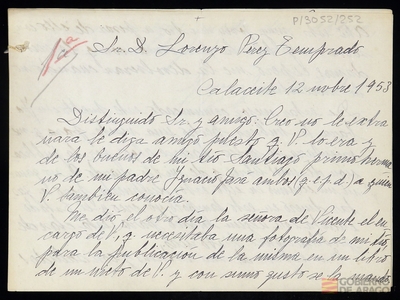 P/3052/252
1ª
Sr. D. Lorenzo Pérez Temprado
Calaceite 12 nobre 1953
Distinguido Sr. y amigo: Creo no le extra
ñara le diga amigo puesto q. V. lo era y
de los buenos de mi tio Santiago primo herma
no de mi padre Ignacio Jasa ambos (q.e.p.d.) a quien
V. tambien conocia.
Me dió el otro dia la señora de Vicente el en
cargo de V. q. necesitaba una fotografia de mi tio,
para la publicacion de la misma en un libro
de un nieto de V. y con sumo gusto se la mando
GOBIERNO
DE ARAGON